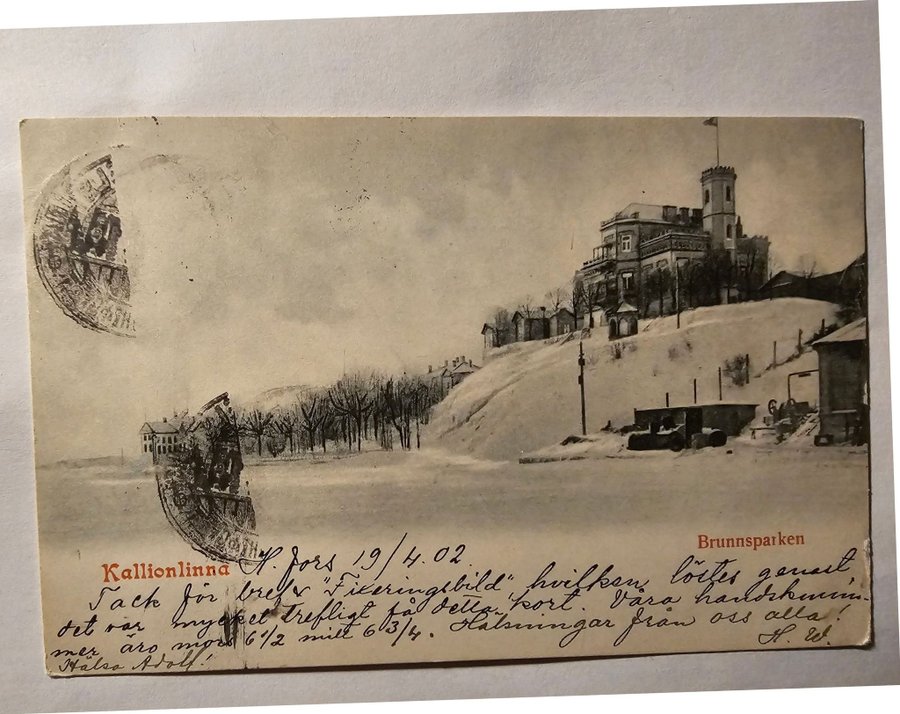 Brunnsparken
Kallionlinna
H. fors 19/4.02.
Tack för bref o "Fixeringsbild", hvilken löstes genast
det var mycket trefligt få detta kort. Våra handsknum-
mer äro mors 6 1/2 mitt 6 3/4. Hälsningar från oss alla!
Hälsa Adolf! H. W.